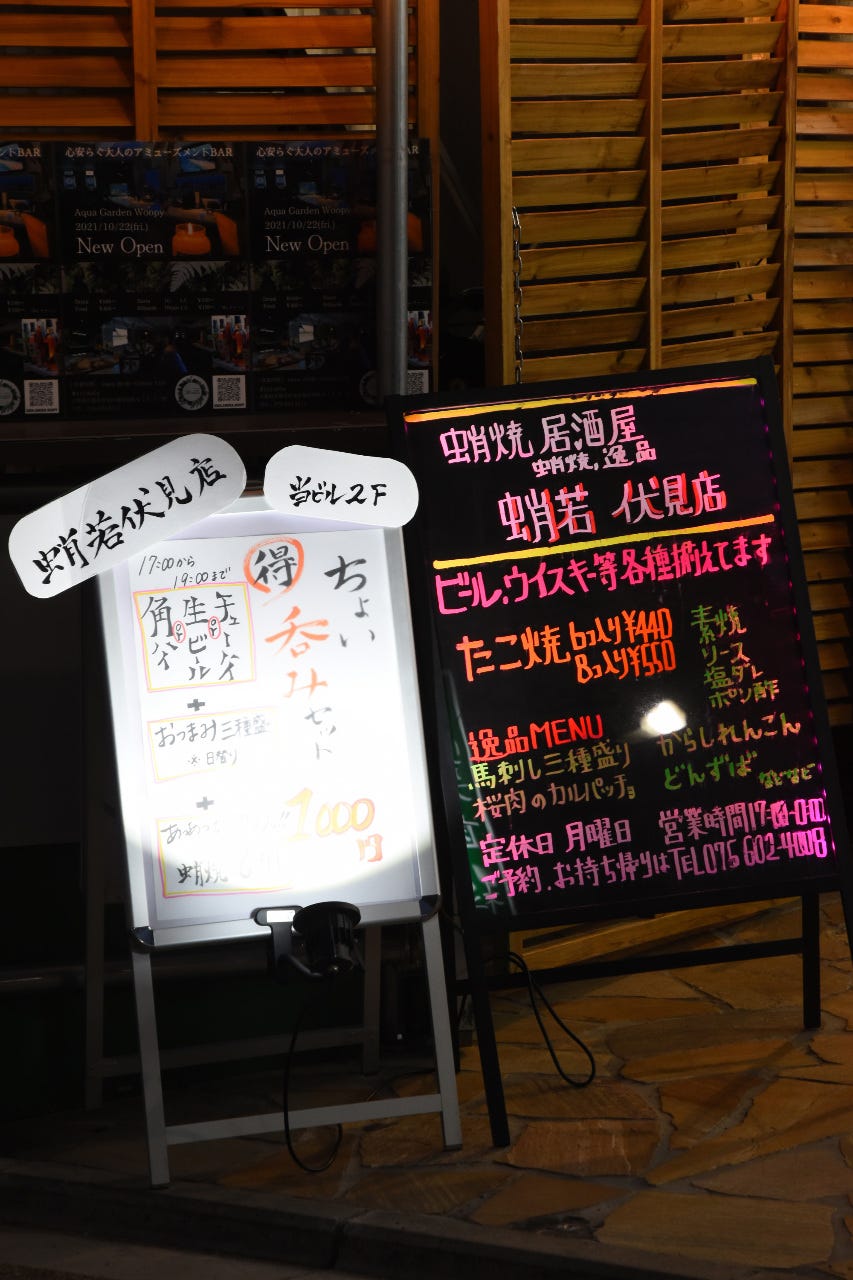 ントBAR
心安らぐ大人のアミューズメントBAR
Aqua Garden Woopy
2021/10/22(fri.)
New Open
心安らぐ大人のアミューズメントBAR
Aqua Garden Woopy
2021/10/22(fri.)
New Open
蛸若伏見店
当ビル2F
ちょい
得
呑みセット
17:00から
19:00まで
チューハイ
or
生ビール
or
角ハイ
+
おつまみ三種盛
※日替り
+
蛸焼
1000
円
蛸焼 居酒屋
蛸焼、逸品
蛸若 伏見店
ビール、ウイスキー等各種揃えてます
たこ焼 6コ入り¥440
8コ入り¥550
素焼
ソース
塩ダレ
ポン酢
逸品MENU
馬刺し三種盛り
桜肉のカルパッチョ
からしれんこん
どんずば
などなど
定休日 月曜日
営業時間17:00-0:00
ご予約、お持ち帰りはTEL075 602 4008